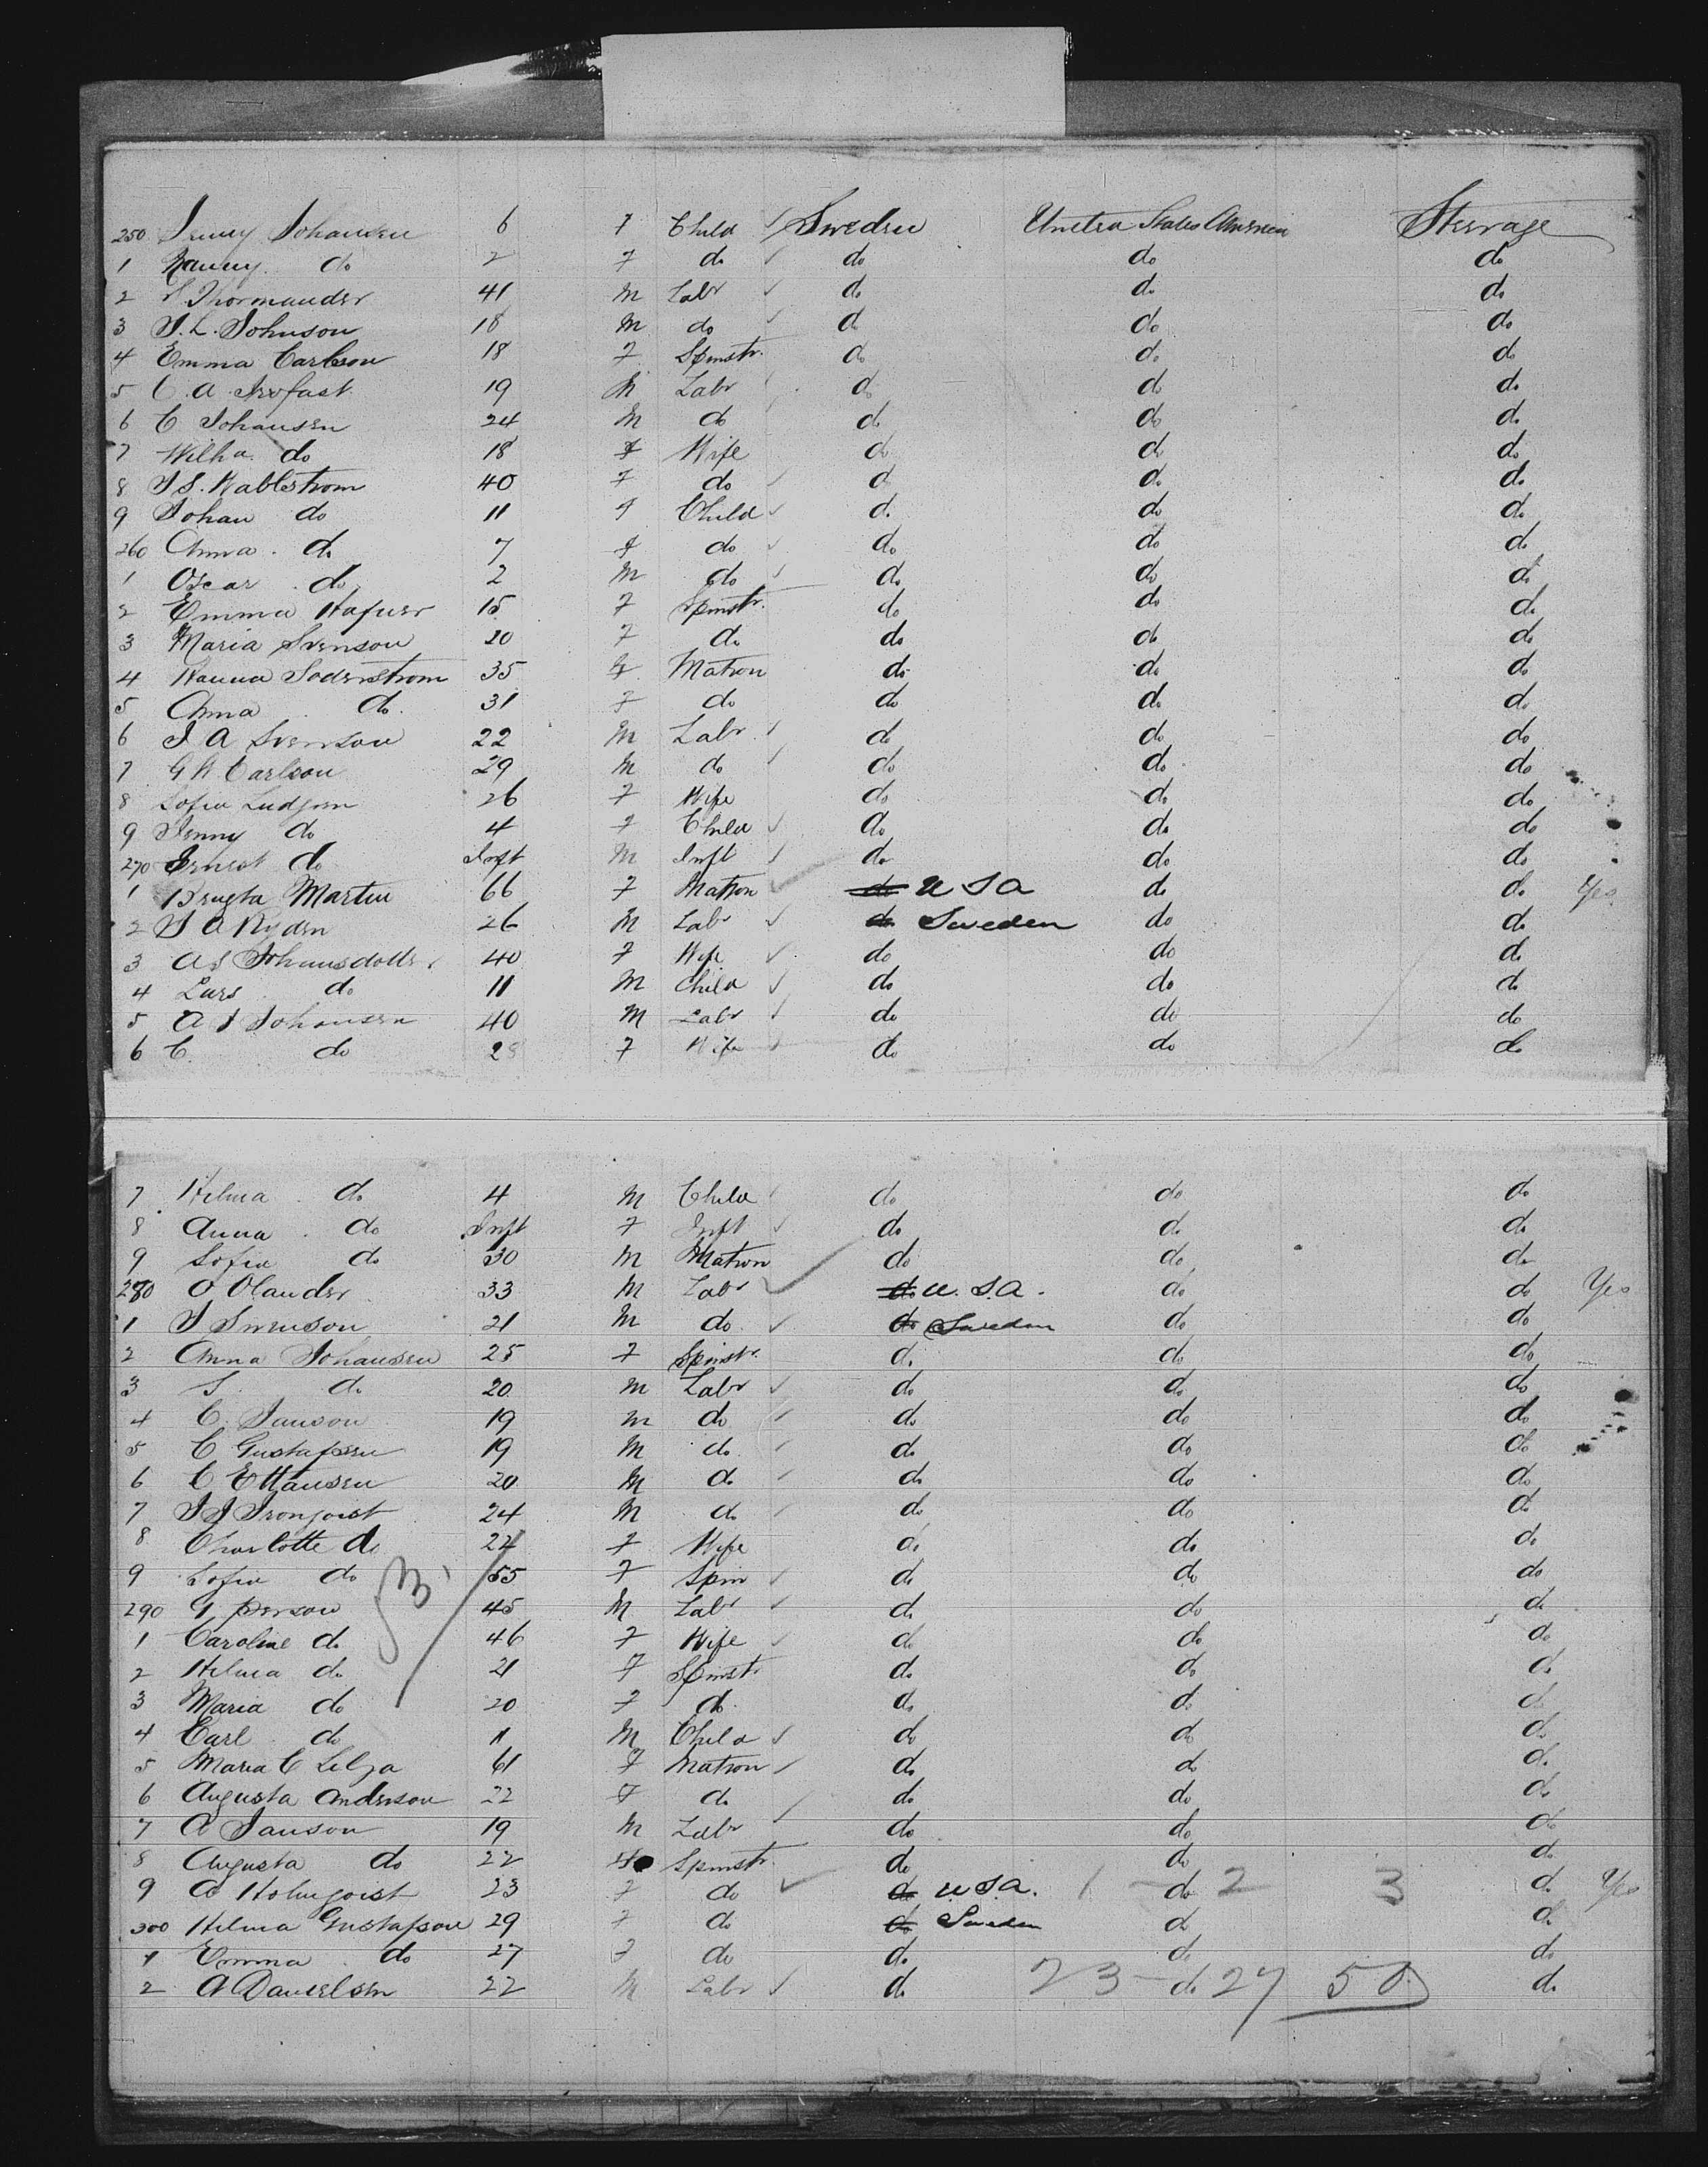 250 Jenny Johansen 6 F Child Sweden United States America Steerage
1 Nanny do 2 F do do do do
2 Thormander 41 M Labr do do do
3 J. L. Johnson 18 M do do do do
4 Emma Carlson 18 F Spinstr. do do do
5 C. A. 19 M Labr do do do
6 C Johansen 24 M do do do do
7 Wilha do 18 F Wife do do do
8 J S. Wahlstrom 40 F do do do do
9 Johan do 11 F Child do do do
260 Anna do 7 F do do do do
1 Oscar do 2 M do do do do
2 Emma Hafner 15 F Spinstr. do do do
3 Maria Svenson 20 F do do do do
4 Hanna Soderstrom 35 F Matron do do do
5 Anna do 31 F do do do do
6 J A Svenson 22 M Labr do do do
7 G W Carlson 29 M do do do do
8 Sofia 26 F Wife do do do
9 Jenny do 4 F Child do do do
270 Ernest do Inft M Inft do do do
1 Martin 66 F Matron do U S A do do Yes
2 J A Ryden 26 M Labr do Sweden do do
3 A S Johansdottr 40 F Wife do do do
4 Lars do 11 M Child do do do
5 A J Johansen 40 M Labr do do do
6 C. do 28 F Wife do do do
7 Hilma do 4 M Child do do do
8 Anna do Inft F Inft do do do
9 Sofia do 30 M Matron do do do
280 O Olander 33 M Labr do U. S. A. do do Yes
1 J Swenson 21 M do do Sweden do do
2 Anna Johansen 25 F Spinstr. do do do
3 J. do 20 M Labr do do do
4 C. Janson 19 M do do do do
5 C Gustafsen 19 M do do do do
6 C E Hansen 20 M do do do do
7 J J 24 M do do do do
8 Charlotte do 22 F Wife do do do
9 Sofia do 55 F Spin do do do
290 G person 45 M Labr do do do
1 Caroline do 46 F Wife do do do
2 Hilma do 21 F Spinstr do do do
3 Maria do 20 F do do do do
4 Carl do 11 M Child do do do
5 Maria C Lilja 61 F Matron do do do
6 Augusta Anderson 22 F do do do do
7 A Janson 19 M Labr do do do
8 Augusta do 22 Spinstr. do do do
9 A Holmqoist 23 F do do U S A. 1 - do 2 3 do Yes
300 Hilma Gustafson 29 F do do Sweden do do
1 Emma do 27 F do do do do
2 A Danielsen 22 M Labr do 23 - do 27 50 do